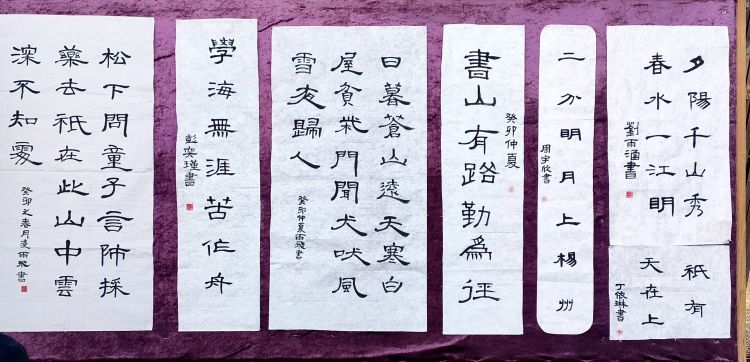 夕陽千山秀
春水一江明
劉雨涵書
祇有
天在上
丁依琳書
二分明月上楊州
周宇欣書
書山有路勤爲徑
癸卯仲夏
日暮蒼山遠天寒白
屋貧柴門聞犬吠風
雪夜歸人
癸卯仲夏雨飛書
學海無涯苦作舟
彭奕瑾書
松下問童子言師採
藥去祇在此山中雲
深不知處
癸卯之春月凌雨飛書